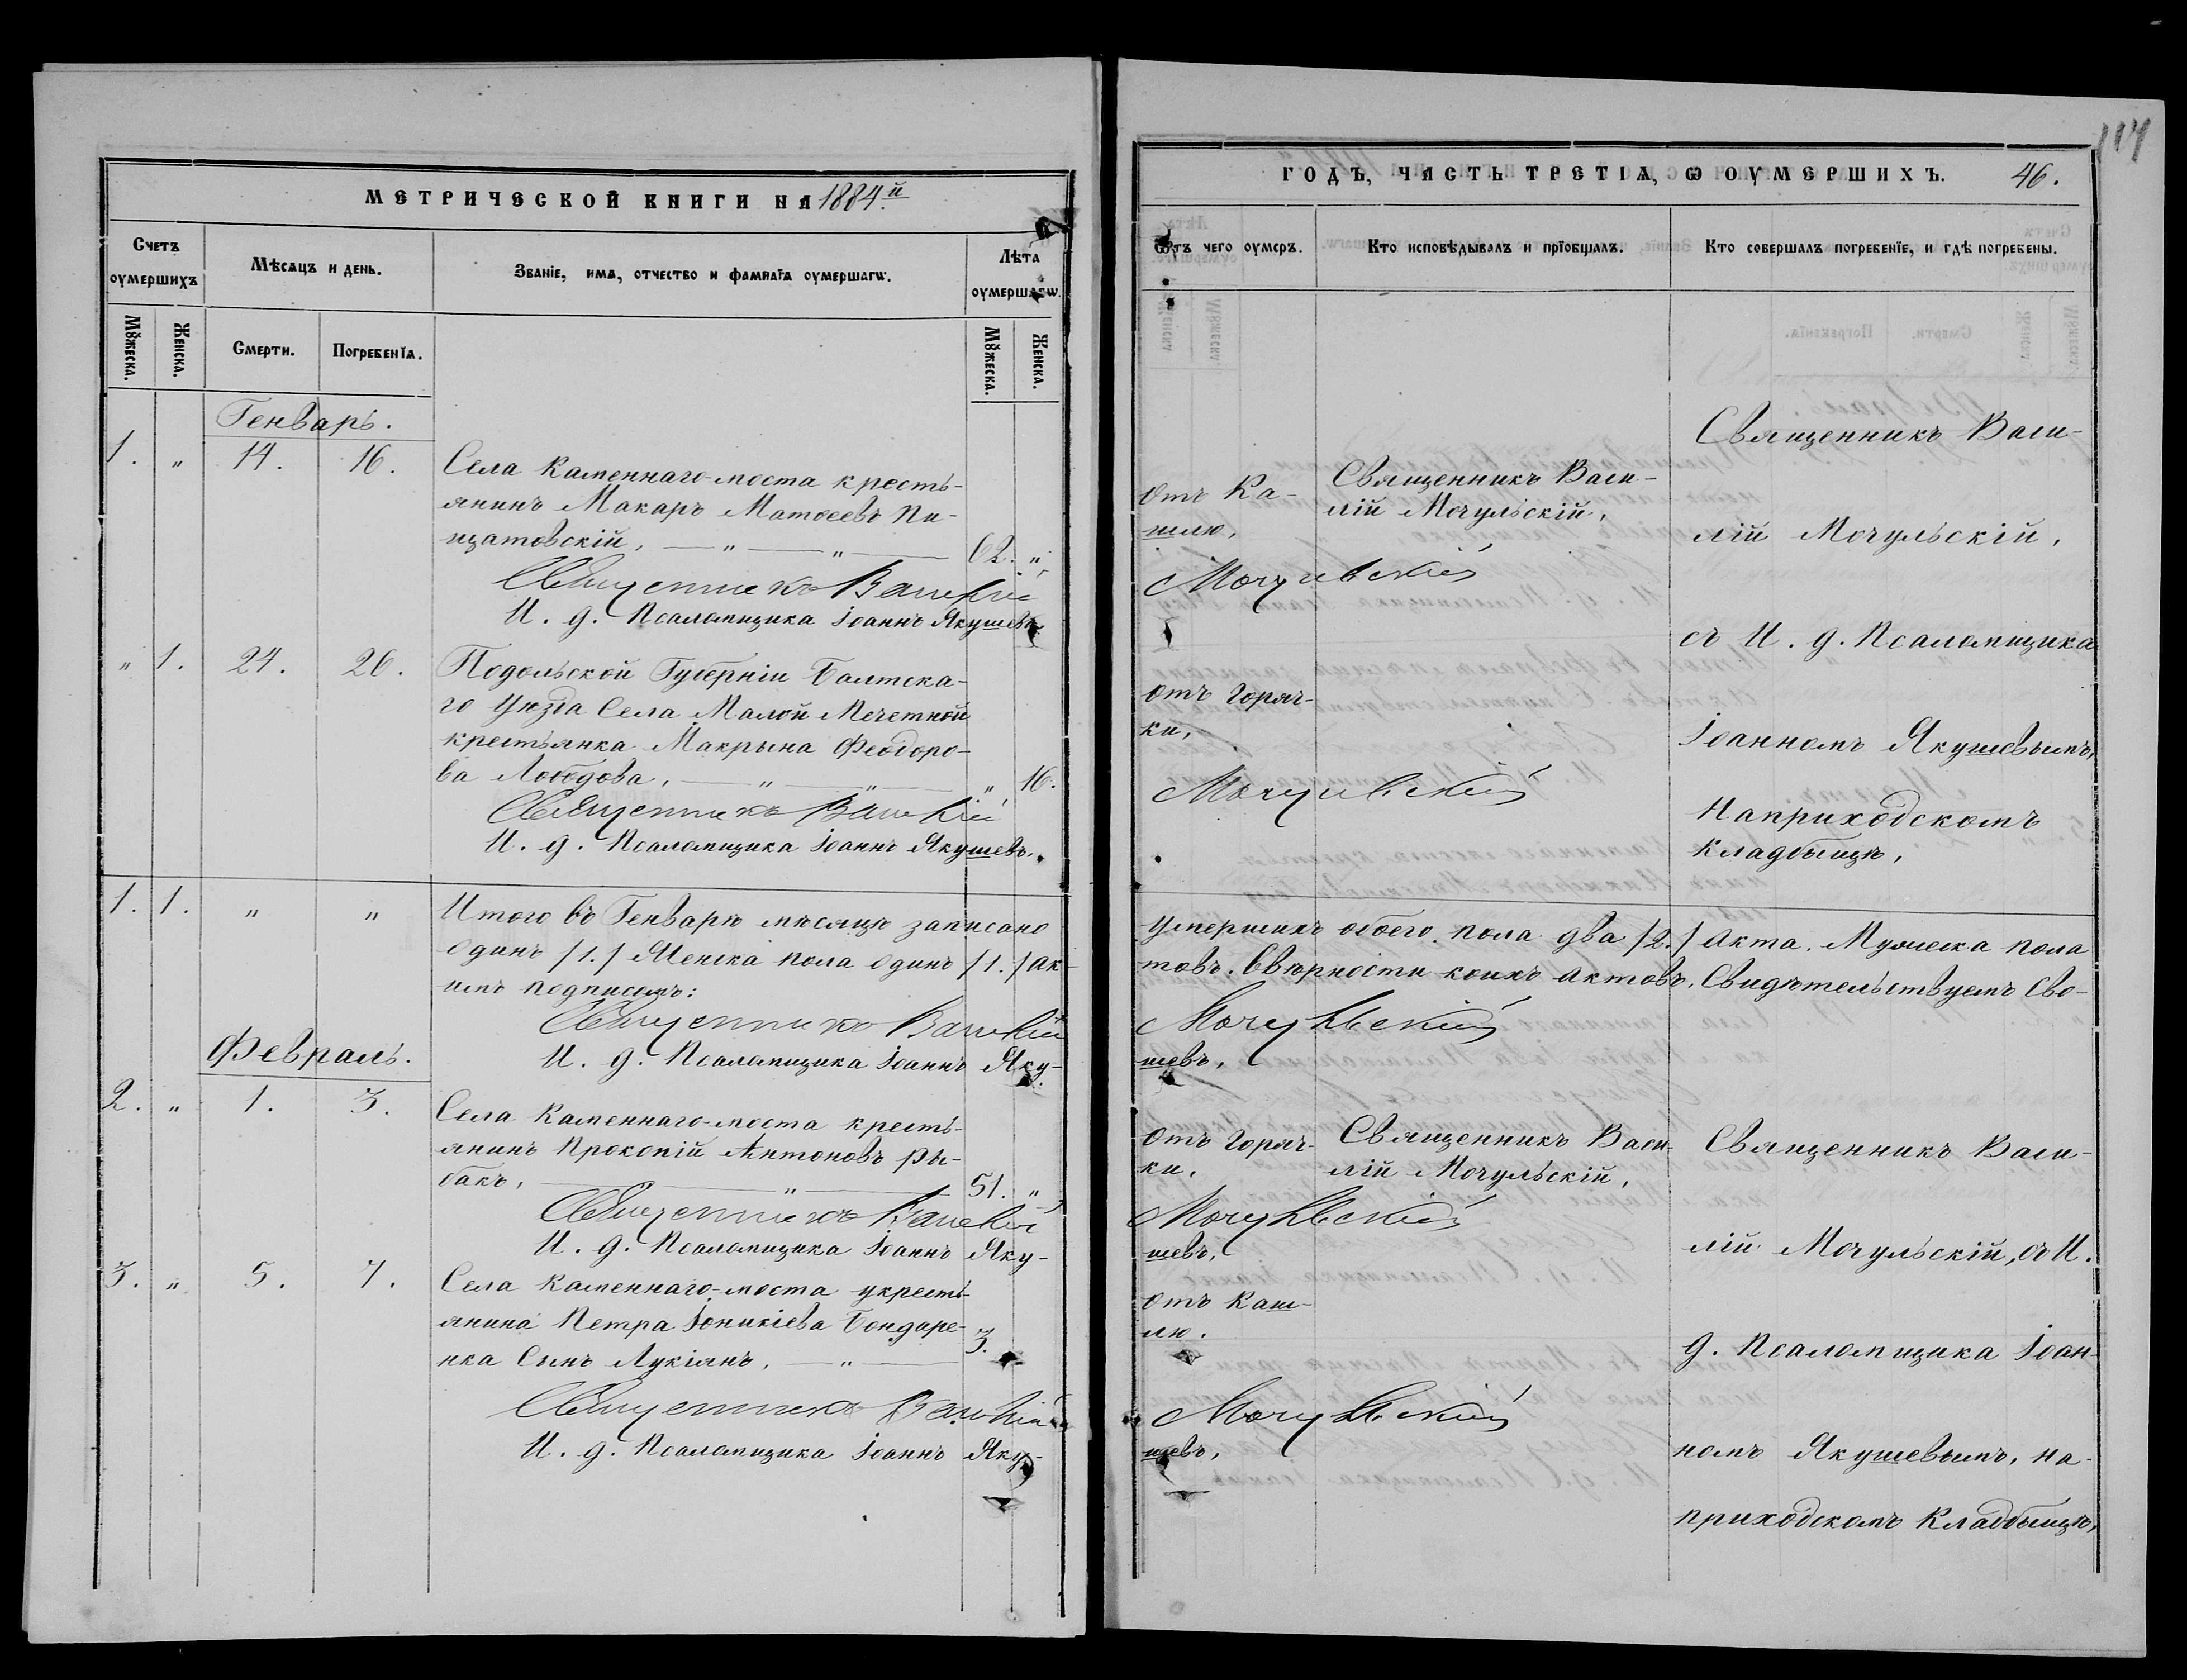 МЕТРИЧЕСКОЙ КНИГИ НА 1884.й
Счетъ оумершихъ
Мѣсяцъ и день.
Званіе, имя, отчество и фамилія оумершагѡ.
Лѣта оумершагѡ.
Мꙋжеска.
Женска.
Смерти.
Погребенїѧ.
Мꙋжеска.
Женска.
Генварь.
1. " 14. 16.
Села Каменнаго-моста кресть-
янинъ Макаръ Матѳеевъ Пи-
щатовскій, — " — " — 62. "
Священникъ Василій
И. д. Псаломщика Іоаннъ Якушевъ.
" 1. 24. 26.
Подольской Губерніи Балтска-
го Уѣзда Села Малой Мечетной
крестьянка Макрына Ѳеодоро-
ва Лободова, — " — " — " 16.
Священникъ Василій
И. д. Псаломщика Іоаннъ Якушевъ.
1. 1. " "
Итого въ Генварѣ мѣсяцѣ записано
одинъ /1./ Женска пола одинъ /1./ ак-
имъ подписомъ:
Священникъ Василій
И. д. Псаломщика Іоаннъ Яку-
Февраль.
2. " 1. 3.
Села Каменнаго-моста кресть-
янинъ Прокопій Антоновъ Ры-
бакъ, — " — 51. "
Священникъ Василій
И. д. Псаломщика Іоаннъ Яку-
3. " 5. 7.
Села Каменнаго-моста укресть-
янина Петра Іоникіева Бондаре-
нка Сынъ Лукіянъ, — " — 3.
Священникъ Василій
И. д. Псаломщика Іоаннъ Яку-
117
ГОДЪ, ЧАСТЬ ТРЕТІѦ, Ѡ ОУМЕРШИХЪ. 46.
Ѿтъ чего оумеръ.
Кто исповѣдывалъ и прїобщалъ.
Кто совершалъ погребенїе, и гдѣ погребены.
отъ Ка-
шлю,
Священникъ Васи-
лій Мочульскій,
Мочульскій
отъ горяч-
ки,
Мочульскій
Священникъ Васи-
лій Мочульскій,
съ И. д. Псаломщика
Іоанномъ Якушевымъ,
Наприходскомъ
Кладбыщѣ,
Умершихъ обоего пола два /2./ Акта. Мужеска пола
товъ. Ввѣрности коихъ актовъ, Свидѣтельствуемъ Сво-
Мочульскій
шевъ,
отъ горяч-
ки,
Священникъ Васи-
лій Мочульскій,
Мочульскій
шевъ,
отъ Каш-
лю.
Мочульскій
шевъ,
Священникъ Васи-
лій Мочульскій, съ И.
д. Псаломщика Іоан-
номъ Якушевымъ, на-
приходскомъ Кладбыщѣ,